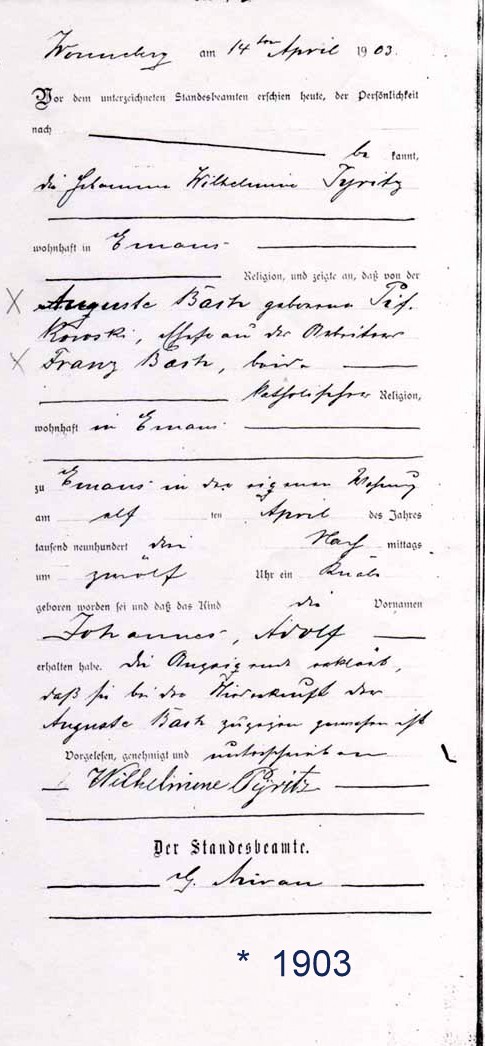 Wonneberg am 14ten April 1903.
Vor dem unterzeichneten Standesbeamten erschien heute, der Persönlichkeit
nach
be kannt,
die Hebamme Wilhelmine Pyritz
wohnhaft in Emaus
Religion, und zeigte an, daß von der
Auguste Basch geborenen
Ehefrau des Arbeiters
Franz Basch, beide
katholischer Religion,
wohnhaft in Emaus
zu Emaus in der eigenen Wohnung
am elf ten April des Jahres
tausend neunhundert drei Nach mittags
um zwölf Uhr ein Knabe
geboren worden sei und daß das Kind die Vornamen
Johannes, Adolf
erhalten habe. Die Anzeigende erklärt,
daß sie bei der Niederkunft der
Auguste Basch zugegen gewesen ist
Vorgelesen, genehmigt und unterschrieben
Wilhelmine Pyritz
Der Standesbeamte.
* 1903